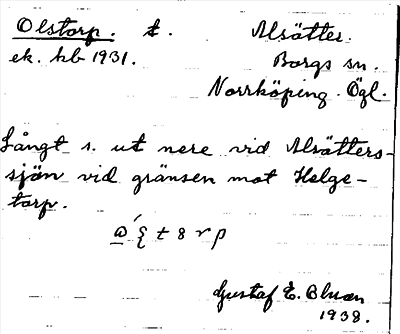 Olstorp. t. Alsätter.
ek. kb 1931. Borgs sn.
Norrköping Ögl.
Långt s. ut nere vid Alsätters-
sjön vid gränsen mot Helge-
torp.
Gustaf E. Bluan
1938.